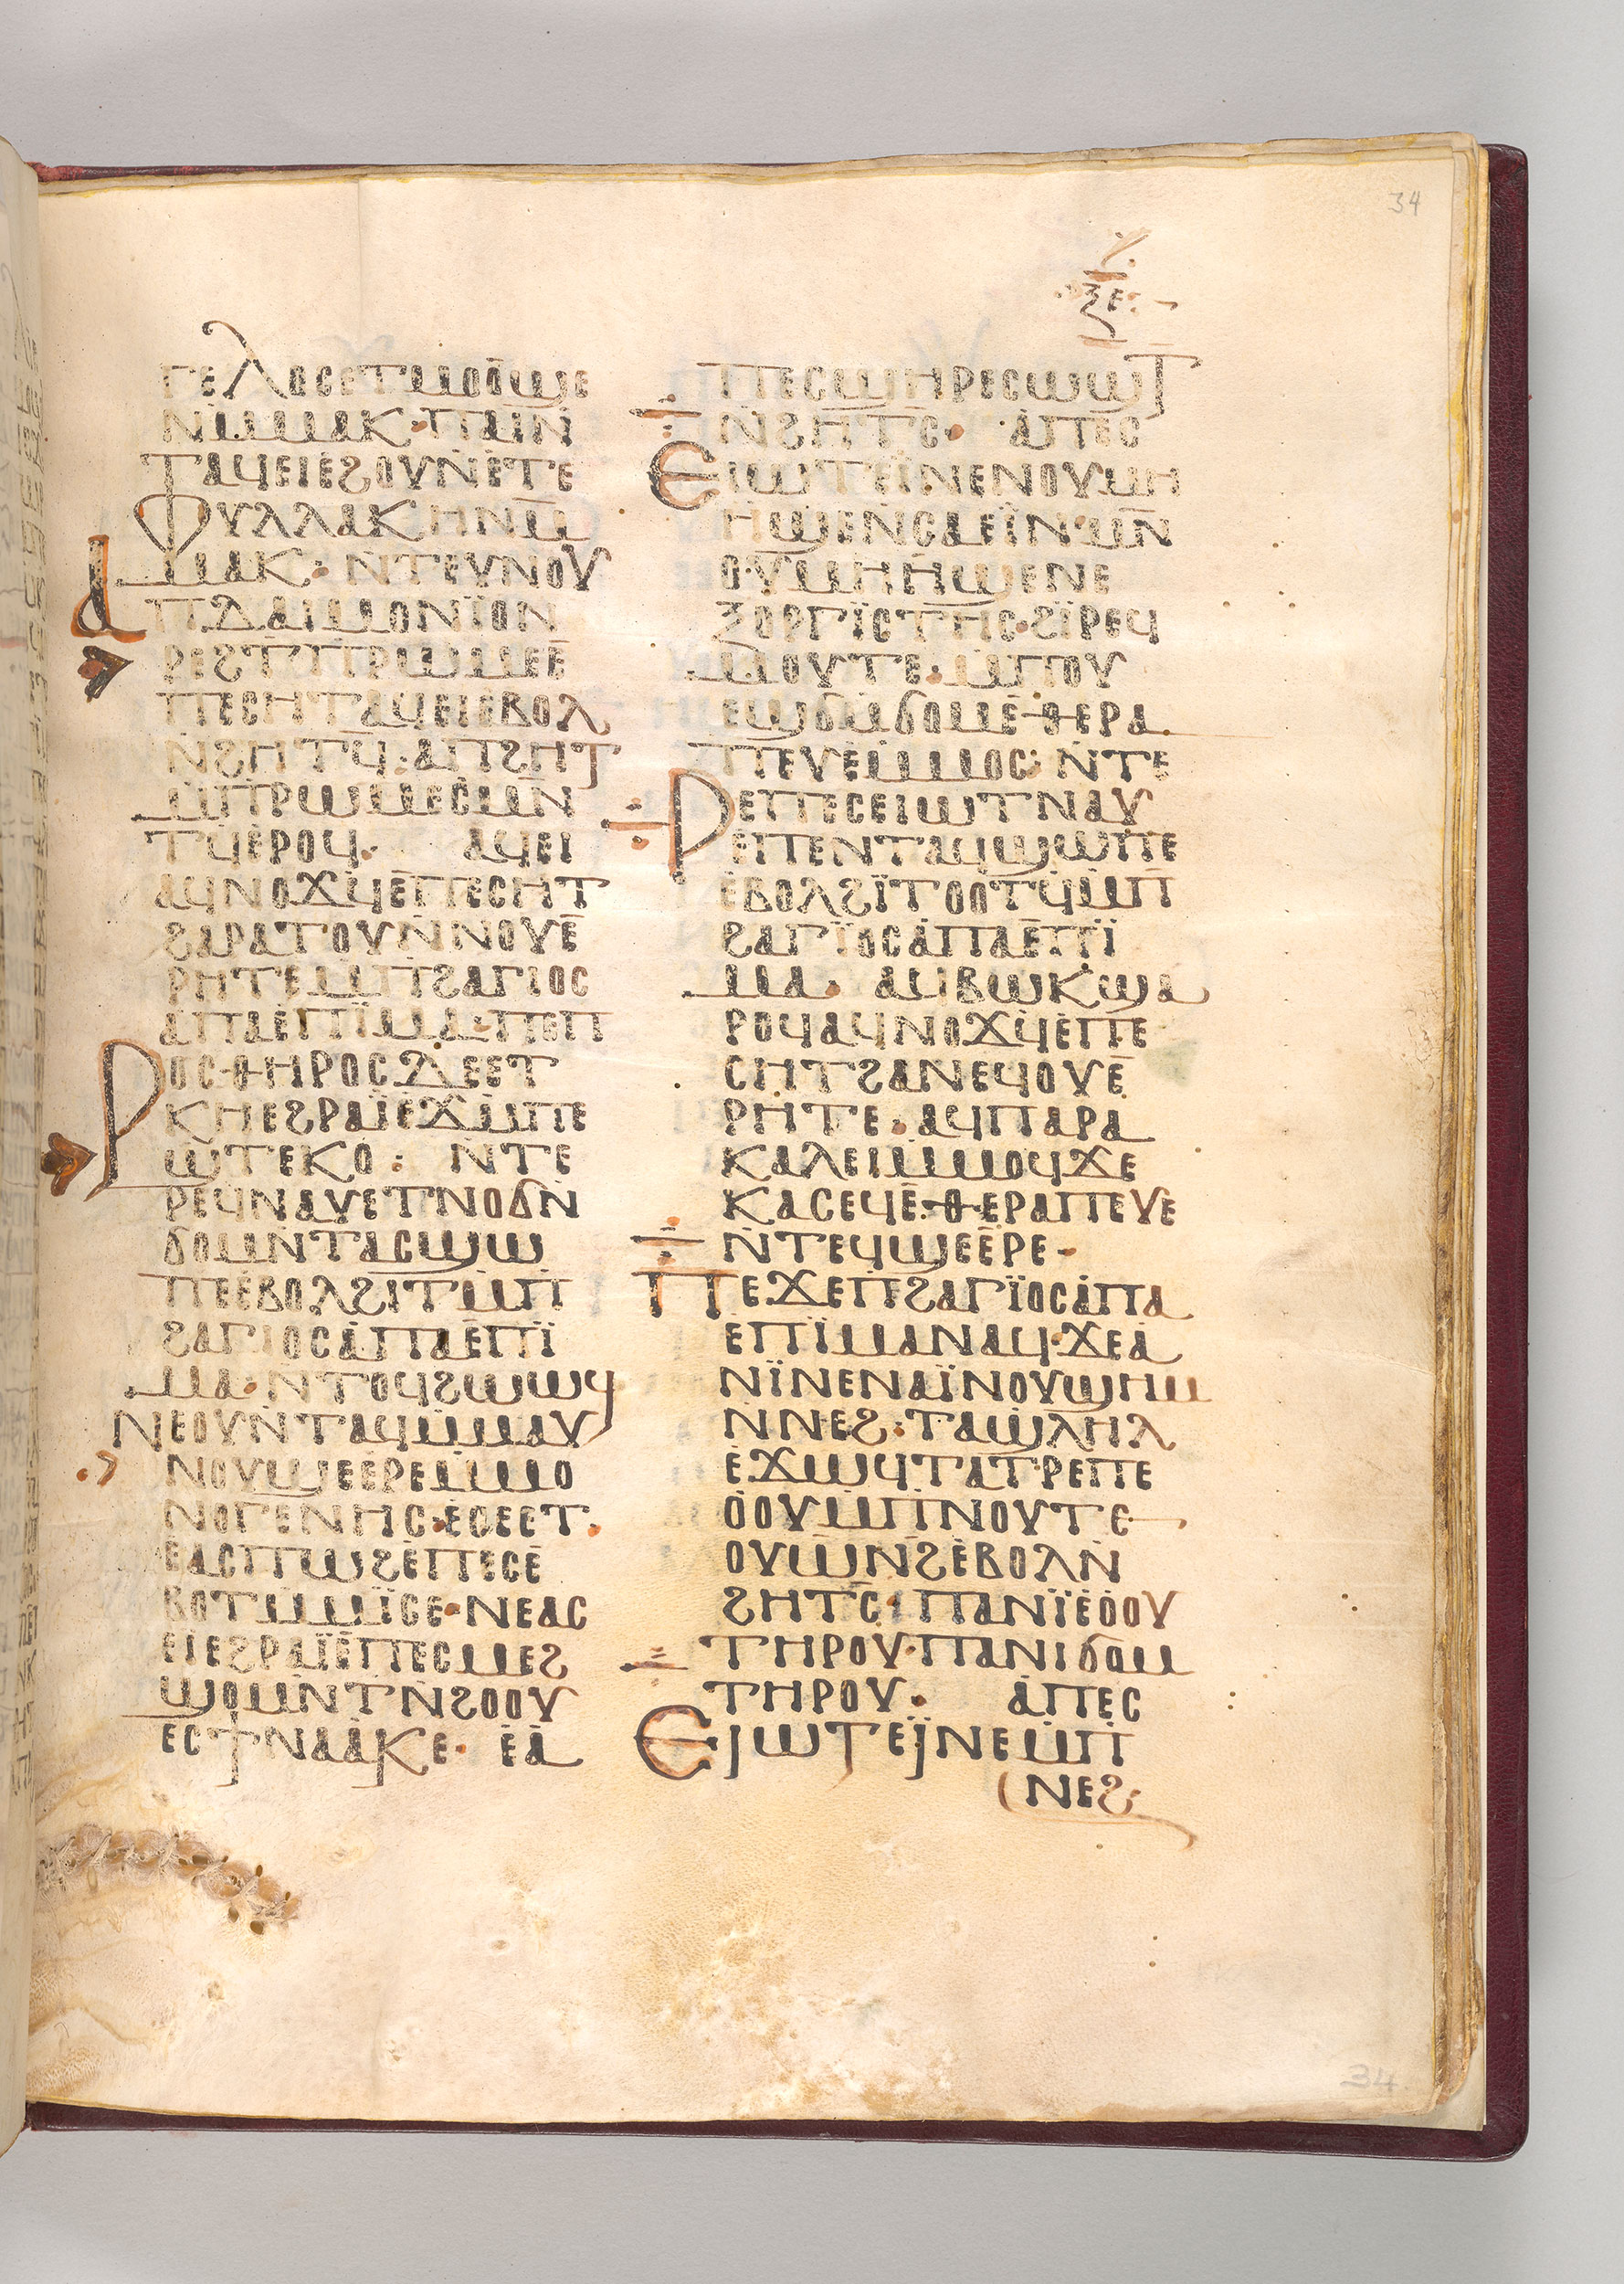 34
ⲝⲉ
ⲅⲉⲗⲟⲥⲉⲧⲙⲟⲟϣⲉ
ⲛⲙ̅ⲙⲁⲕ· ⲡⲁⲓⲛ̅
ⲧⲁϥⲉⲓⲉϩⲟⲩⲛⲉⲧⲉ
ⲫⲩⲗⲗⲁⲕⲏⲛⲙ̅
ⲙⲁⲕ· ⲛ̀ⲧⲉⲩⲛⲟⲩ
ⲁⲡⲇⲁⲓⲙⲟⲛⲓ̈ⲟⲛ
ⲣⲉϩⲧⲡⲣⲱⲙⲉⲉ̅
ⲡⲉⲥⲏⲧⲁϥⲉⲓⲉⲃⲟⲗ
ⲛ̀ϩⲏⲧϥ̅· ⲁⲡϩⲏⲧ
ⲙ̀ⲡⲣⲱⲙⲉⲥⲙⲛ̅
ⲧϥⲉ̀ⲣⲟϥ· ⲁϥⲉⲓ
ⲁϥⲛⲟϫϥ̀ⲉⲡⲉⲥⲏⲧ
ϩⲁⲣⲁⲧⲟⲩⲛ̀ⲛⲟⲩⲉ̅
ⲣⲏⲧⲉⲙ̀ⲡϩⲁⲅⲓⲟⲥ
ⲁⲡⲁⲉ̀ⲡⲓ̈ⲙⲁ· ⲡⲉⲡ
ⲣⲟⲥⲑⲏⲣⲟⲥⲇⲉⲉⲧ
ⲕⲏⲉϩⲣⲁⲓ̈ⲉ̀ϫⲙ̀ⲡⲉ
ϣⲧⲉⲕⲟ̀· ⲛ̀ⲧⲉ
ⲣⲉϥⲛⲁⲩⲉⲧⲛⲟϭⲛ̀
ϭⲟⲙⲛ̀ⲧⲁⲥϣⲱ
ⲡⲉⲉ̀ⲃⲟⲗϩⲓⲧⲙ̀ⲡ
ϩⲁⲅⲓⲟⲥⲁ̀ⲡⲁⲉ̀ⲡⲓ̈
ⲙⲁ· ⲛ̀ⲧⲟϥϩⲱⲱϥ
ⲛⲉⲟⲩⲛ̀ⲧⲁϥⲙ̀ⲙⲁⲩ
ⲛⲟⲩϣⲉⲉⲣⲉⲙ̀ⲙⲟ
ⲛⲟⲅⲉⲛⲏⲥ· ⲉ̀ⲥⲉⲉⲧ·
ⲉⲁⲥⲡⲱϩⲉ̀ⲡⲉⲥⲉ̀
ⲃⲟⲧⲙ̀ⲙⲓ̈ⲥⲉ· ⲛⲉⲁⲥ
ⲉⲓⲉϩⲣⲁⲓ̈ⲉ̀ⲡⲉⲥⲙⲉϩ
ϣⲟⲙⲛ̀ⲧⲛ̀ϩⲟⲟⲩ
ⲉⲥϯⲛⲁⲁ̀ⲕⲉ· ⲉ̀ⲁ̀
ⲡⲉⲥϣⲏⲣⲉⲥⲱⲱⲧ
ⲛ̀ϩⲏⲧⲥ̅· ⲁ̀ⲡⲉⲥ
ⲉⲓⲱⲧⲉⲓ̈ⲛⲉⲛⲟⲩⲙⲏ
ⲏϣⲉⲛ̀ⲥⲁⲉⲓ̈ⲛ· ⲙⲛ̅
ⲟⲩⲙⲏⲏϣⲉⲛⲉ
ⲝⲟⲣⲅⲓ̈ⲥⲧⲏⲥ· ϩⲓ̈ⲣⲉϥ
ⲙⲟⲩⲧⲉ· ⲙ̀ⲡⲟⲩ
ⲉϣϭⲙ̀ϭⲟⲙⲉ̀ⲑⲉⲣⲁ
ⲡⲉⲩⲉⲙ̀ⲙⲟⲥ· ⲛ̀ⲧⲉ
ⲣⲉⲡⲉⲥⲉⲓⲱⲧⲛⲁⲩ
ⲉ̀ⲡⲉⲛⲧⲁϥϣⲱⲡⲉ
ⲉ̀ⲃⲟⲗϩⲓ̈ⲧⲟⲟⲧϥ̀ⲙ̀ⲡ
ϩⲁⲅⲓ̈ⲟⲥⲁ̀ⲡⲁⲉ̀ⲡⲓ̈
ⲙⲁ· ⲁϥⲃⲱⲕϣⲁ
ⲣⲟϥⲁϥⲛⲟϫϥ̀ⲉ̀ⲡⲉ
ⲥⲏⲧϩⲁⲛⲉϥⲟⲩⲉ̅
ⲣⲏⲧⲉ· ⲁϥⲡⲁⲣⲁ
ⲕⲁⲗⲉⲓⲙ̀ⲙⲟϥϫⲉ
ⲕⲁⲥⲉϥⲉ̀ⲑⲉⲣⲁⲡⲉⲩⲉ
ⲛ̀ⲧⲉϥϣⲉⲉ̀ⲣⲉ·
ⲡⲉϫⲉⲡϩⲁⲅⲓ̈ⲟⲥⲁ̀ⲡⲁ
ⲉⲡⲓ̈ⲙⲁⲛⲁϥ· ϫⲉⲁ̀
ⲛⲓ̈ⲛⲉⲛⲁⲓ̈ⲛⲟⲩϣⲏⲙ
ⲛ̀ⲛⲉϩ· ⲧⲁϣⲗⲏⲗ
ⲉ̀ϫⲱϥⲧⲁⲧⲣⲉⲡⲉ
ⲟ̀ⲟⲩⲙ̀ⲡⲛⲟⲩⲧⲉ
ⲟⲩⲱⲛ̀ϩⲉ̀ⲃⲟⲗⲛ̀
ϩⲏⲧⲥ̅· ⲡⲁⲛⲓ̈ⲉ̀ⲟ̀ⲟⲩ
ⲧⲏⲣⲟⲩ· ⲡⲁⲛⲓϭⲟⲙ
ⲧⲏⲣⲟⲩ· ⲁ̀ⲡⲉⲥ
ⲉⲓⲱⲧⲉⲓ̈ⲛⲉⲙ̀ⲡ
ⲛⲉϩ
34